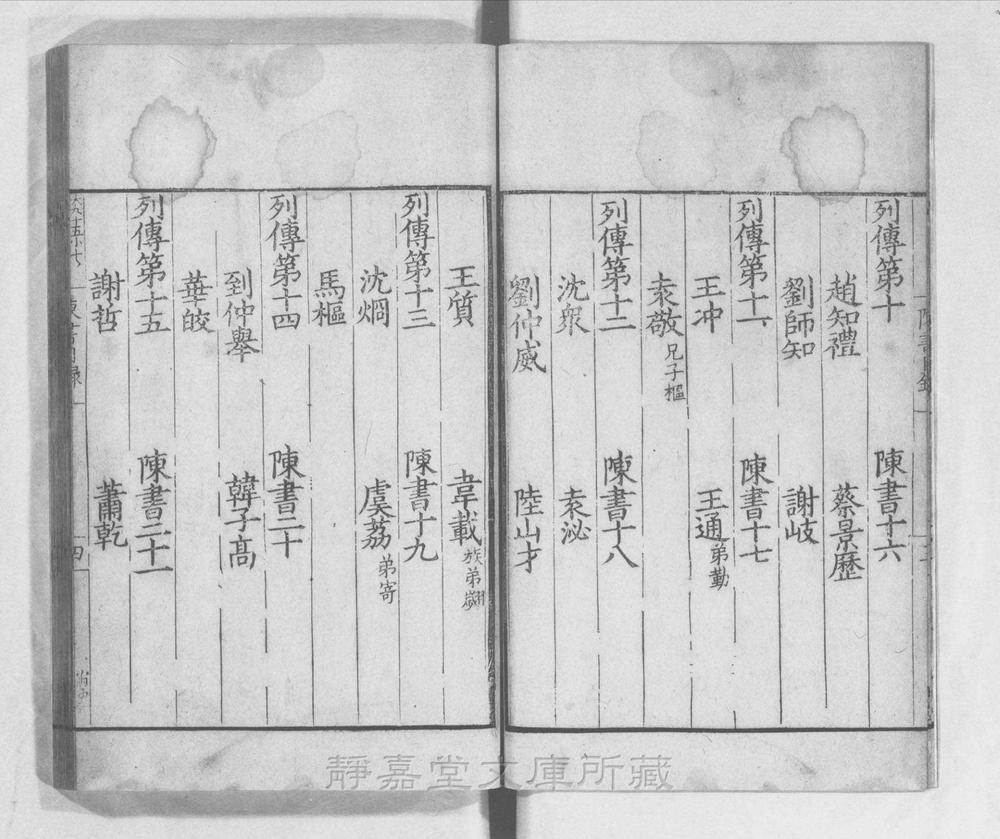 列傳第十　陳書十六
趙知禮　蔡景歷
劉師知　謝岐
列傳第十一　陳書十七
王冲　王通弟勱
袁敬兄子樞
列傳第十二　陳書十八
沈衆　袁泌
劉仲威　陸山才
王質　韋載族弟翽
列傳第十三　陳書十九
沈烱　虞荔弟寄
馬樞
列傳第十四　陳書二十
到仲舉　韓子高
華皎
列傳第十五　陳書二十一
謝哲　蕭乾
四
靜嘉堂文庫所藏